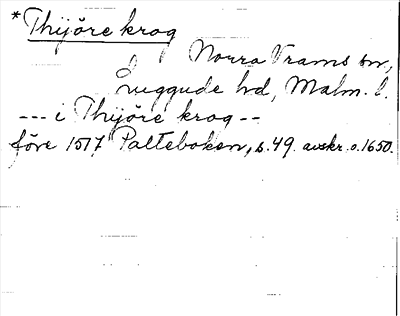 *Thijöre krog
Norra Vrams sn,
Luggude hd, Malm. l.
--- i Thijöre krog --
före 1517 Palteboken, s. 49. avskr. o. 1650.